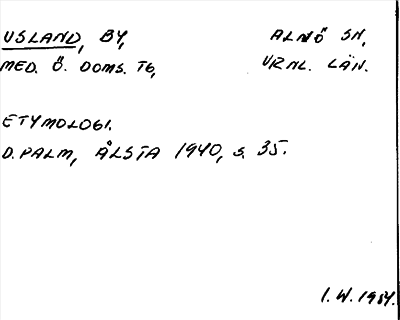 USLAND, BY, ALNÖ SN,
MED. Ö. DOMS. TG, VRNL. LÄN.
ETYMOLOGI.
D. PALM, ÅLSTA 1940, S. 35.
I. W. 1984.